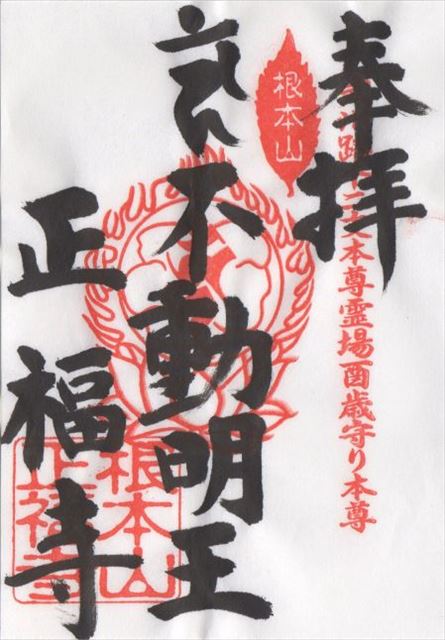 奉拝
根本山
本尊霊場酉歳守り本尊
不動明王
正福寺
根本山
正福寺